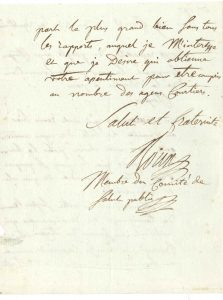 port le plus grand bien sous tous
les rapports, auquel je m'interesse
et que je Desire qui obtienne
votre agrement pour etre compris
au nombre des agens Courtiers.
Salut et fraternité
Membre du Comité de
Salut public